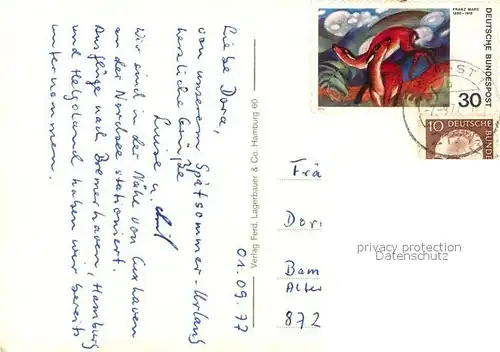 Liebe Dora,
von unserem Spätsommer-Urlaub
herzliche Grüße
Luise u.
01.09.77
Wir sind in der Nähe von Cuxhaven
an der Nordsee stationiert.
Ausflüge nach Bremerhaven, Hamburg
und Helgoland haben wir bereits
unternommen.
Verlag Ferd. Lagerbauer & Co. Hamburg 60
FRANZ MARC
1880-1916
DEUTSCHE BUNDESPOST
30
10 DEUTSCHE BUND
Frä
Dor
Bam
Alter
872
privacy protection
Datenschutz